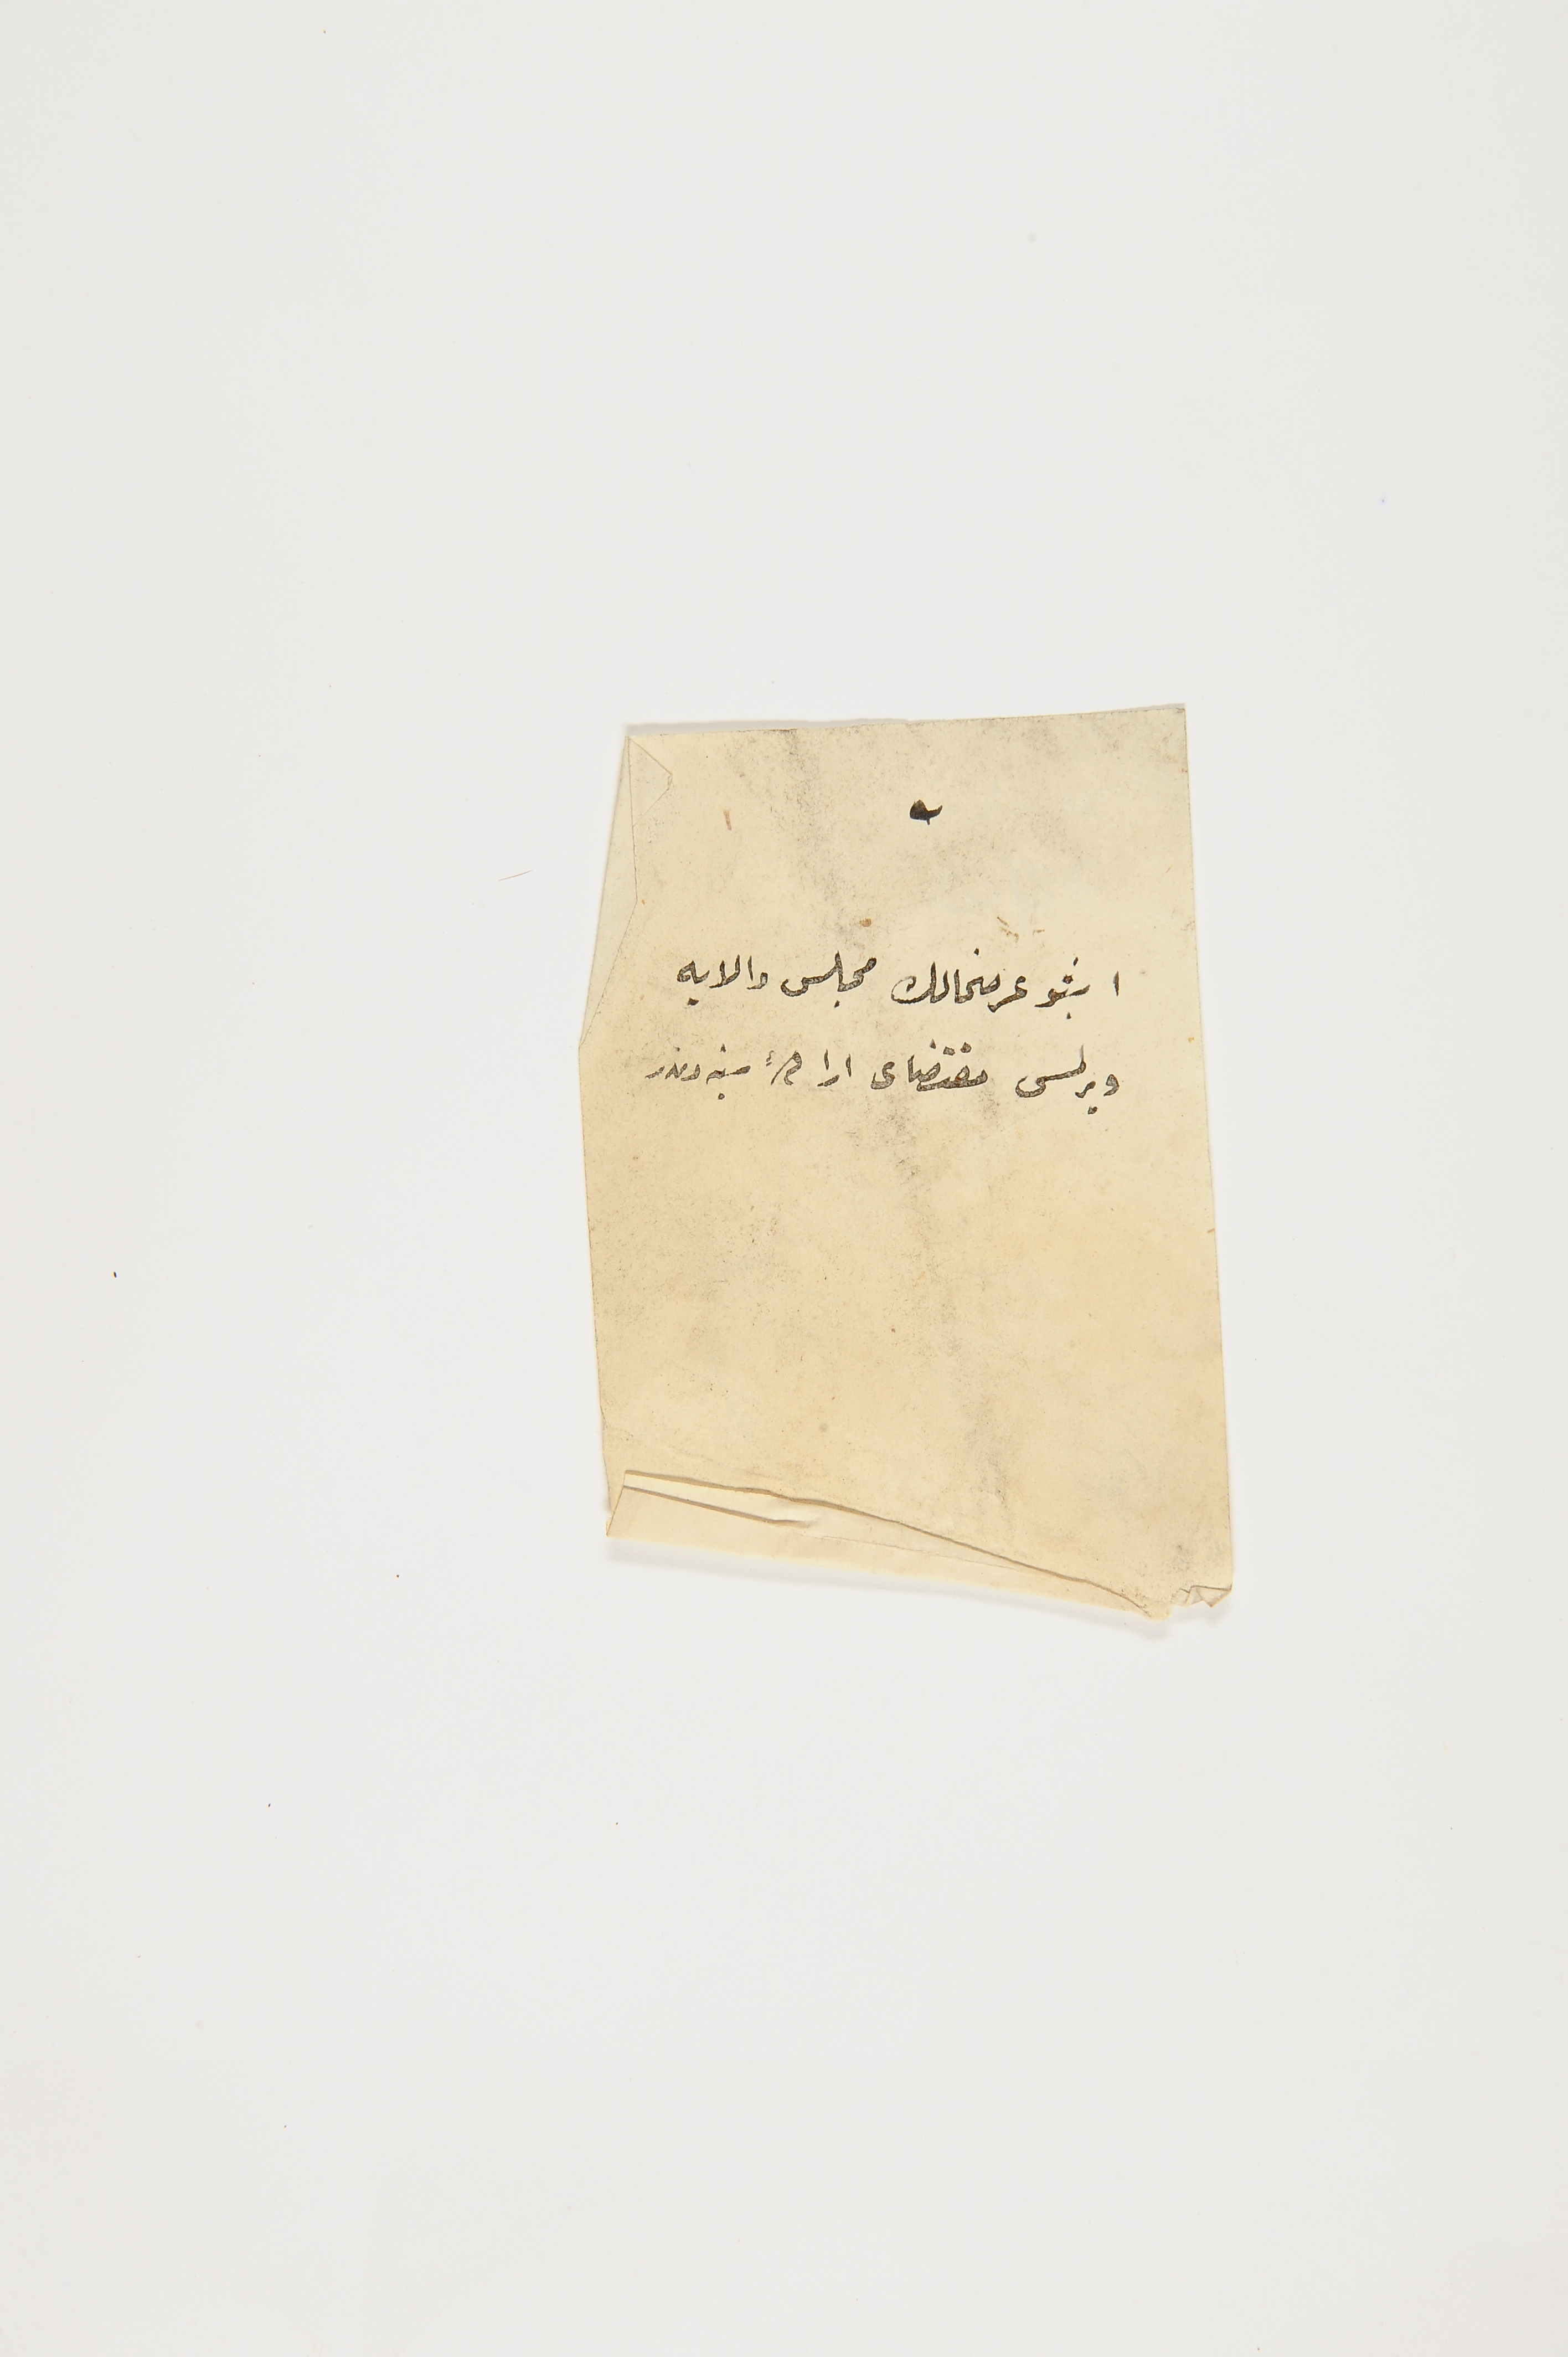 اشبو عرضحالك مجلس والايه
ويرلمسى مقتضاى ارادهٔ سنيه دندر